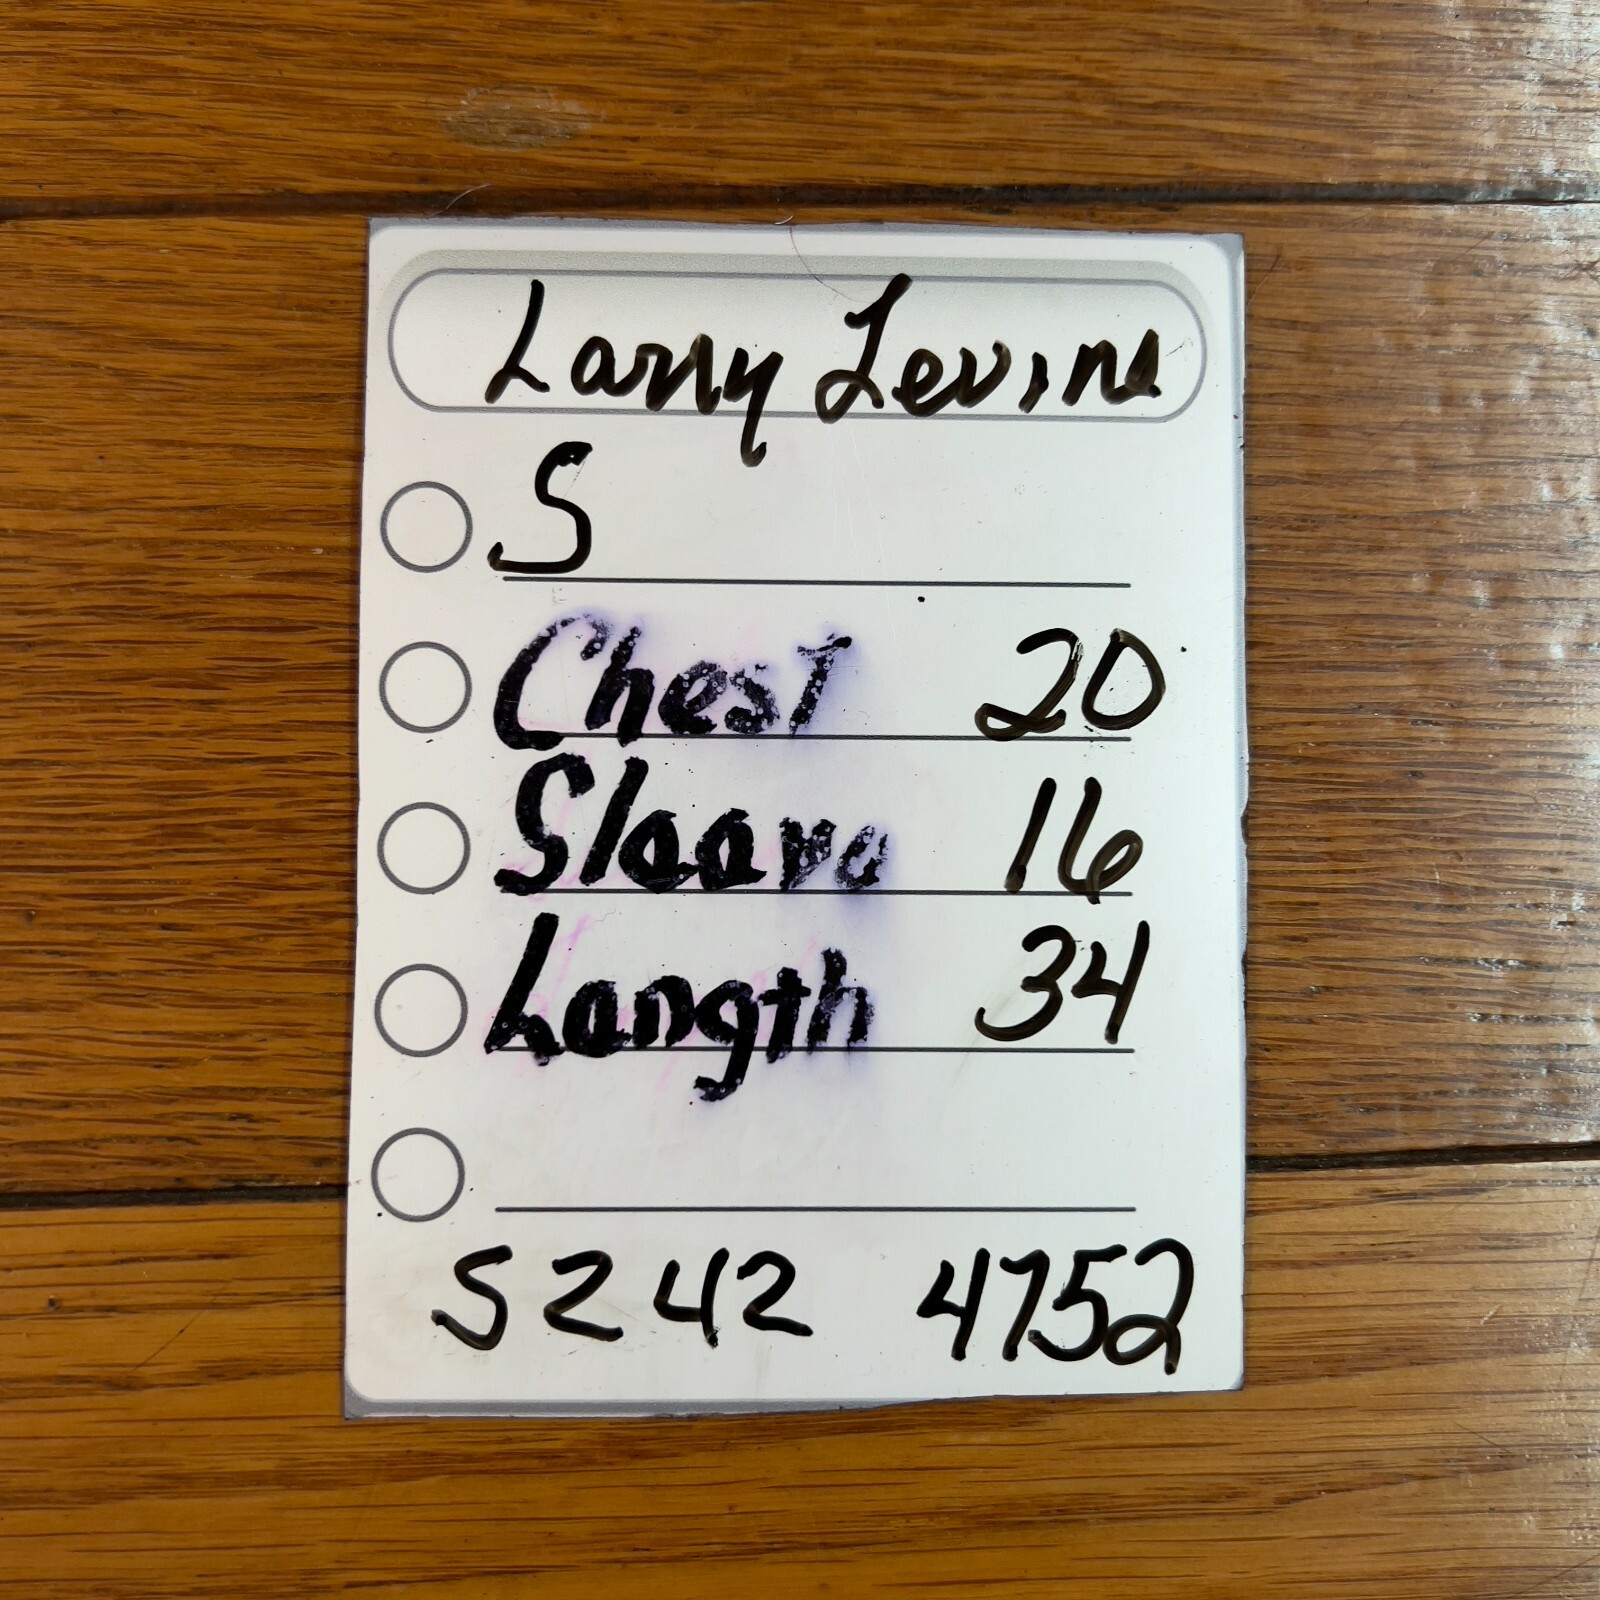 Larry Levine
S
Chest 20
Sleeve 16
Length 34
S242 4752